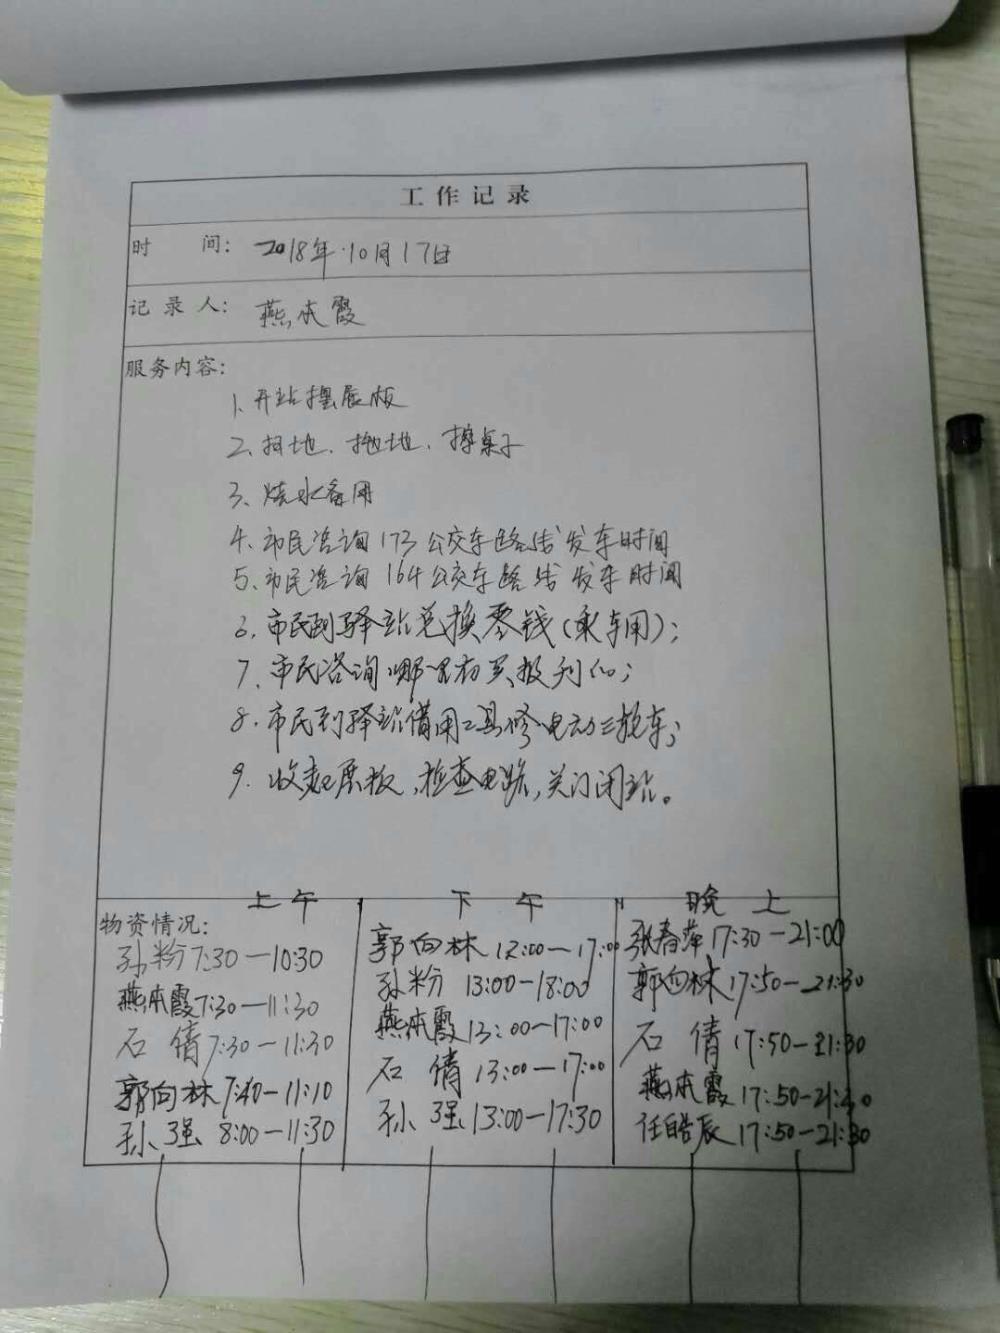 工作记录
时 间: 2018年.10月17日
记录人: 燕本霞
服务内容:
1、开站摆展板
2、扫地、拖地、擦桌子
3、烧水备用
4、市民咨询173公交车路线发车时间
5、市民咨询164公交车路线发车时间
6、市民到驿站兑换零钱(乘车用);
7、市民咨询哪里有买报刊的;
8、市民到驿站借用工具修电动三轮车;
9、收起展板,检查电路,关门闭站。
上午 下午 晚上
物资情况:
孙粉 7:30—10:30
燕本霞 7:30—11:30
石倩 7:30—11:30
郭向林 7:40—11:10
孙强 8:00—11:30
郭向林 12:00—17:00
孙粉 13:00—18:00
燕本霞 13:00—17:00
石倩 13:00—17:00
孙强 13:00—17:30
张春萍 17:30—21:00
郭向林 17:50—21:30
石倩 17:50—21:30
燕本霞 17:50—
任皓辰 17:50—21:30